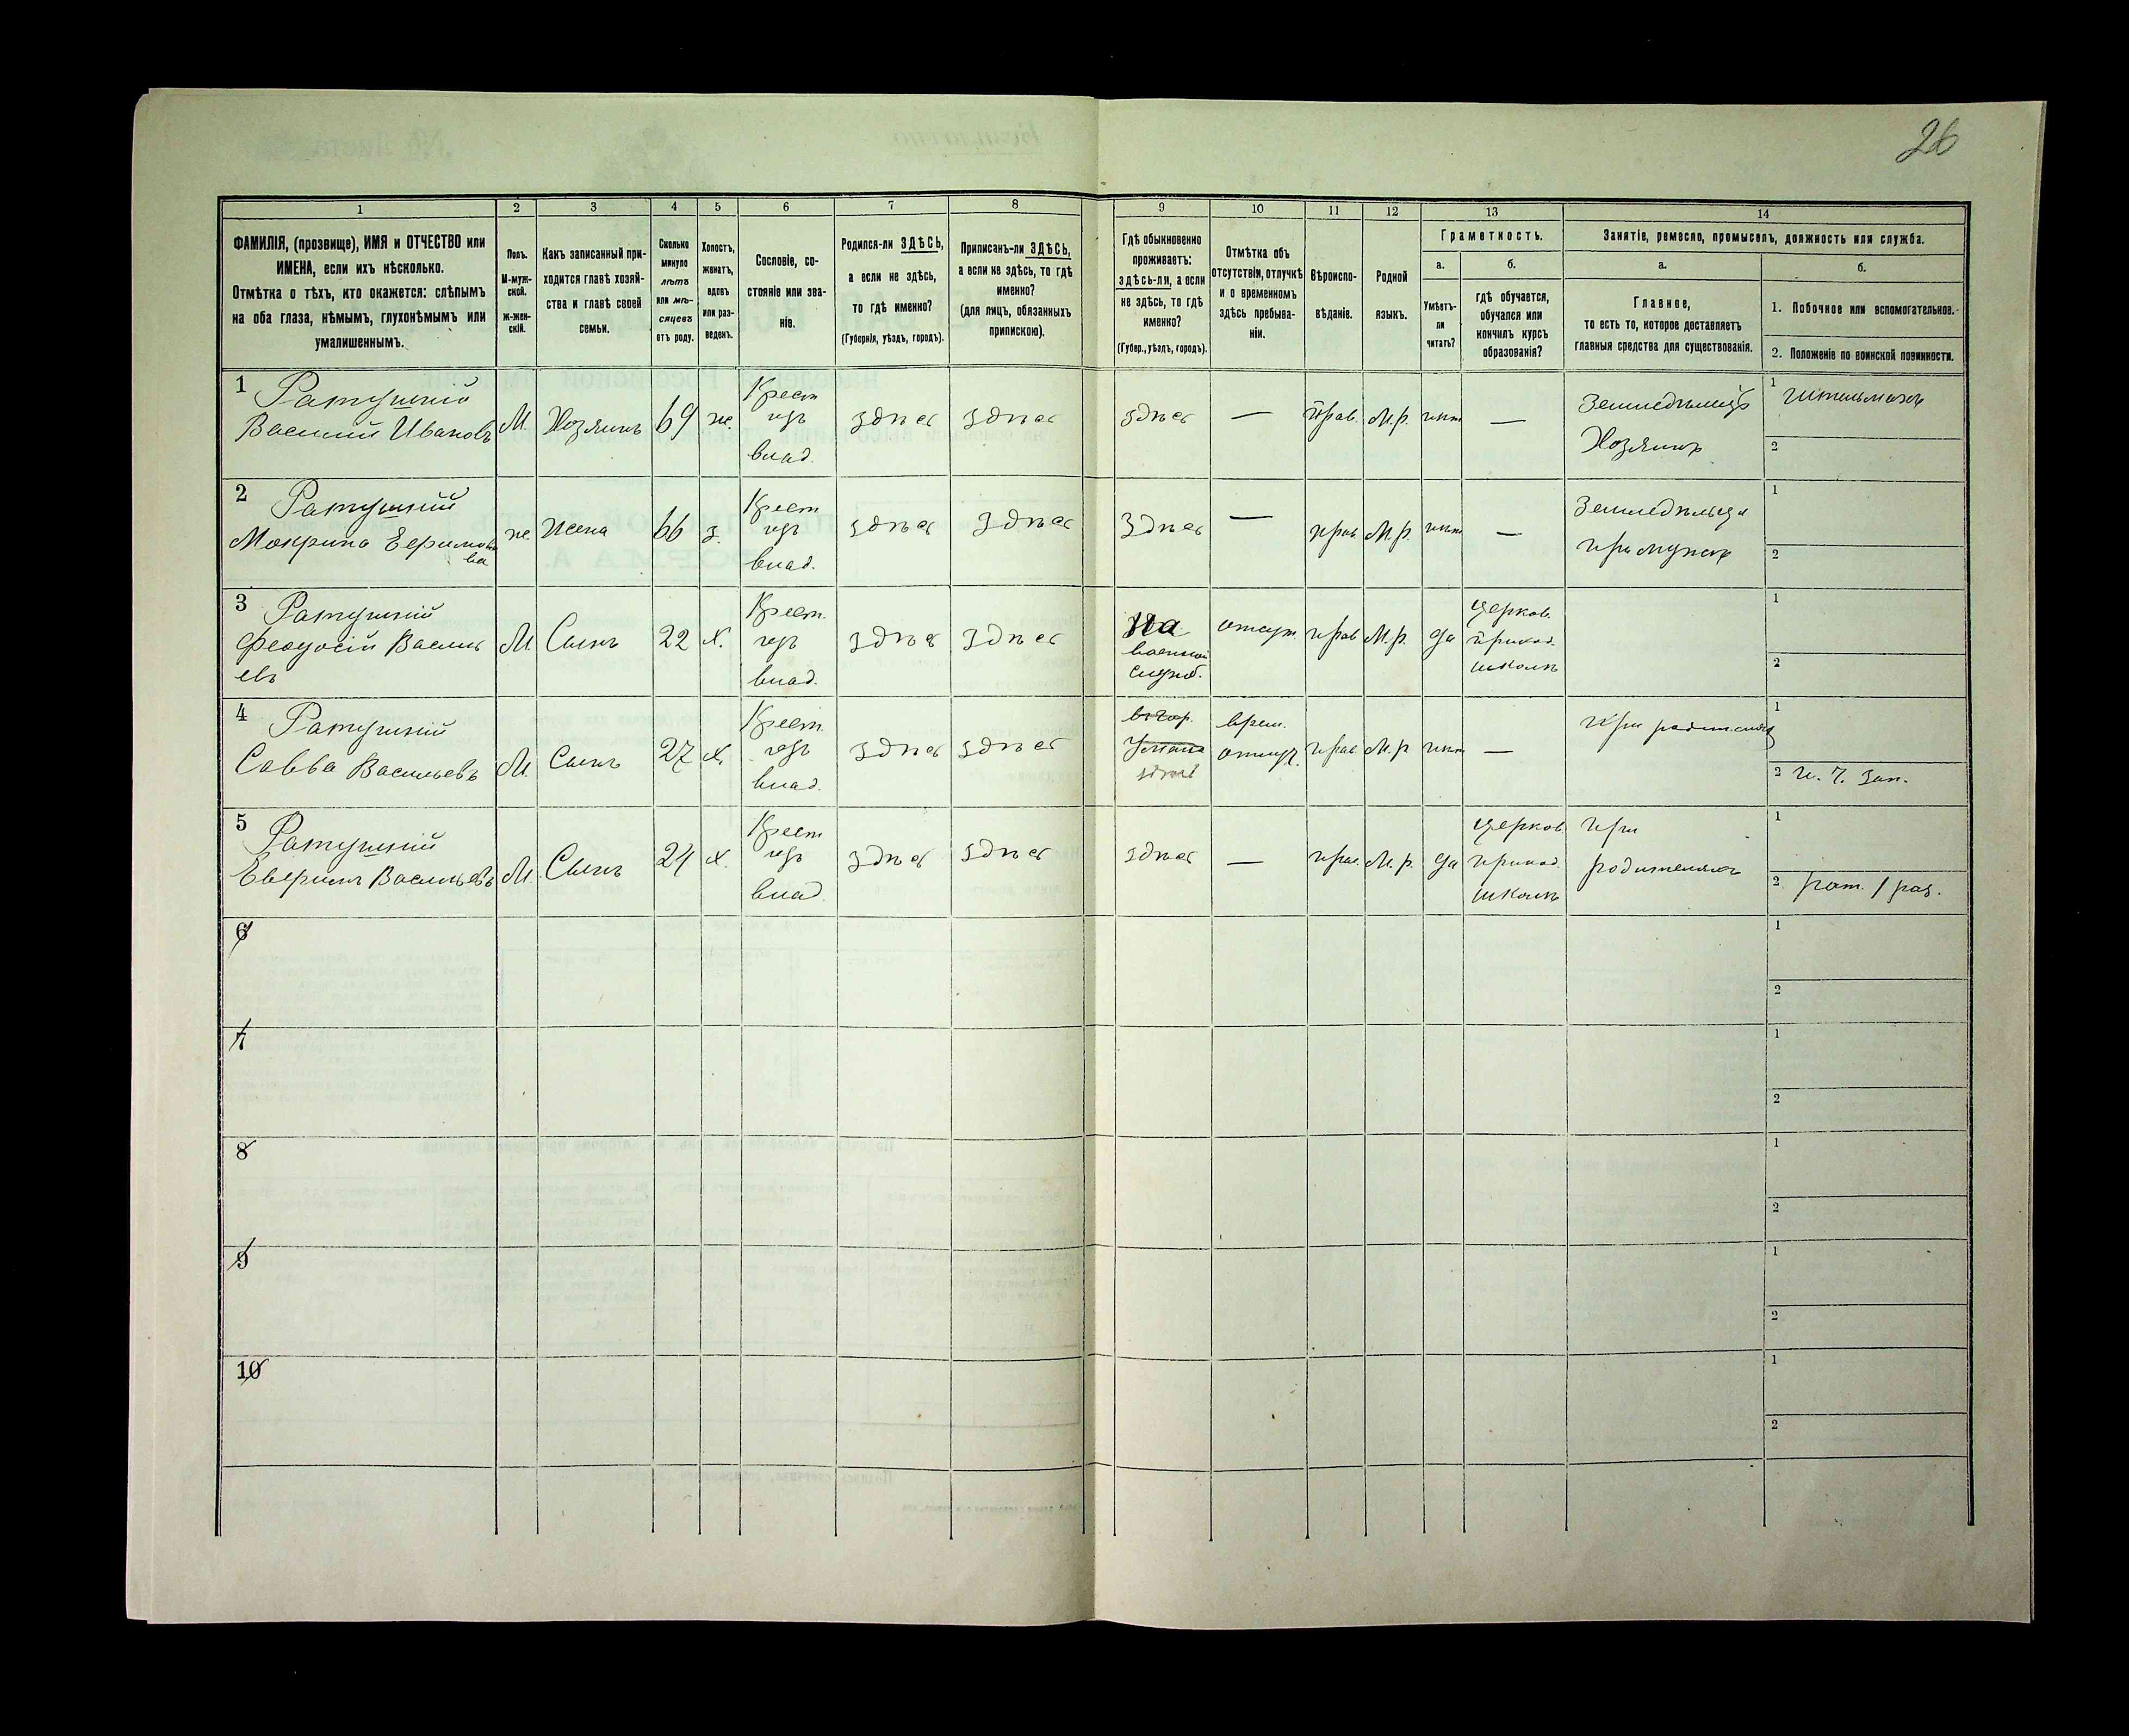 26
1
2
3
4
5
6
7
8
9
10
11
12
13
14
ФАМИЛІЯ, (прозвище), ИМЯ и ОТЧЕСТВО или
ИМЕНА, если ихъ нѣсколько.
Отмѣтка о тѣхъ, кто окажется: слѣпымъ
на оба глаза, нѣмымъ, глухонѣмымъ или
умалишеннымъ.
Полъ.
М-муж-
ской.
ж-жен-
скій.
Какъ записанный при-
ходится главѣ хозяй-
ства и главѣ своей
семьи.
Сколько
минуло
лѣтъ
или мѣ-
сяцевъ
отъ роду.
Холостъ,
женатъ,
вдовъ
или раз-
веденъ.
Сословіе, со-
стояніе или зва-
ніе.
Родился-ли ЗДѢСЬ,
а если не здѣсь,
то гдѣ именно?
(Губернія, уѣздъ, городъ).
Приписанъ-ли ЗДѢСЬ,
а если не здѣсь, то гдѣ
именно?
(для лицъ, обязанныхъ
припискою).
Гдѣ обыкновенно
проживаетъ:
здѣсь-ли, а если
не здѣсь, то гдѣ
именно?
(Губер., уѣздъ, городъ).
Отмѣтка объ
отсутствіи, отлучкѣ
и о временномъ
здѣсь пребыва-
ніи.
Вѣроиспо-
вѣданіе.
Родной
языкъ.
Грамотность.
а.
Умѣетъ-
ли
читать?
б.
гдѣ обучается,
обучался или
кончилъ курсъ
образованія?
Занятіе, ремесло, промыселъ, должность или служба.
а.
Главное,
то есть то, которое доставляетъ
главныя средства для существованія.
б.
1. Побочное или вспомогательное.
2. Положеніе по воинской повинности.
1
Ратушній
Василій Ивановъ
М.
Хозяинъ
69
ж.
Крест
изъ
влад.
здѣсь
здѣсь
здѣсь
—
прав.
М.р.
нѣт
—
Земледѣлецъ
Хозяинъ
1
2
2
Ратушній
Мокрина
ж
Жена
66
з.
Крест
изъ
влад.
здѣсь
здѣсь
здѣсь
—
прав
М.р.
нѣт
—
Земледѣльца
при мужѣ
1
2
3
Ратушній
Феодосій Василь
евъ
М.
Сынъ
22
х.
Крест.
изъ
влад.
здѣсь
здѣсь
На
военной
служб.
отсут.
прав
М.р.
да
церков.
приход.
школѣ
1
2
4
Ратушній
Савва Васильевъ
М.
Сынъ
27
х.
Крест.
изъ
влад.
здѣсь
здѣсь
въ гор.
Умань
здѣсь
врем.
отлуч.
прав
М.р
нѣт
—
При родителях
1
2 зап.
5
Ратушній
Васильевъ
М.
Сынъ
24
х.
Крест
изъ
влад.
здѣсь
здѣсь
здѣсь
—
прав.
М.р.
да
церков.
приход.
школѣ
при
родителяхъ
1
2 рат. 1 раз.
6
1
2
7
1
2
8
1
2
9
1
2
10
1
2